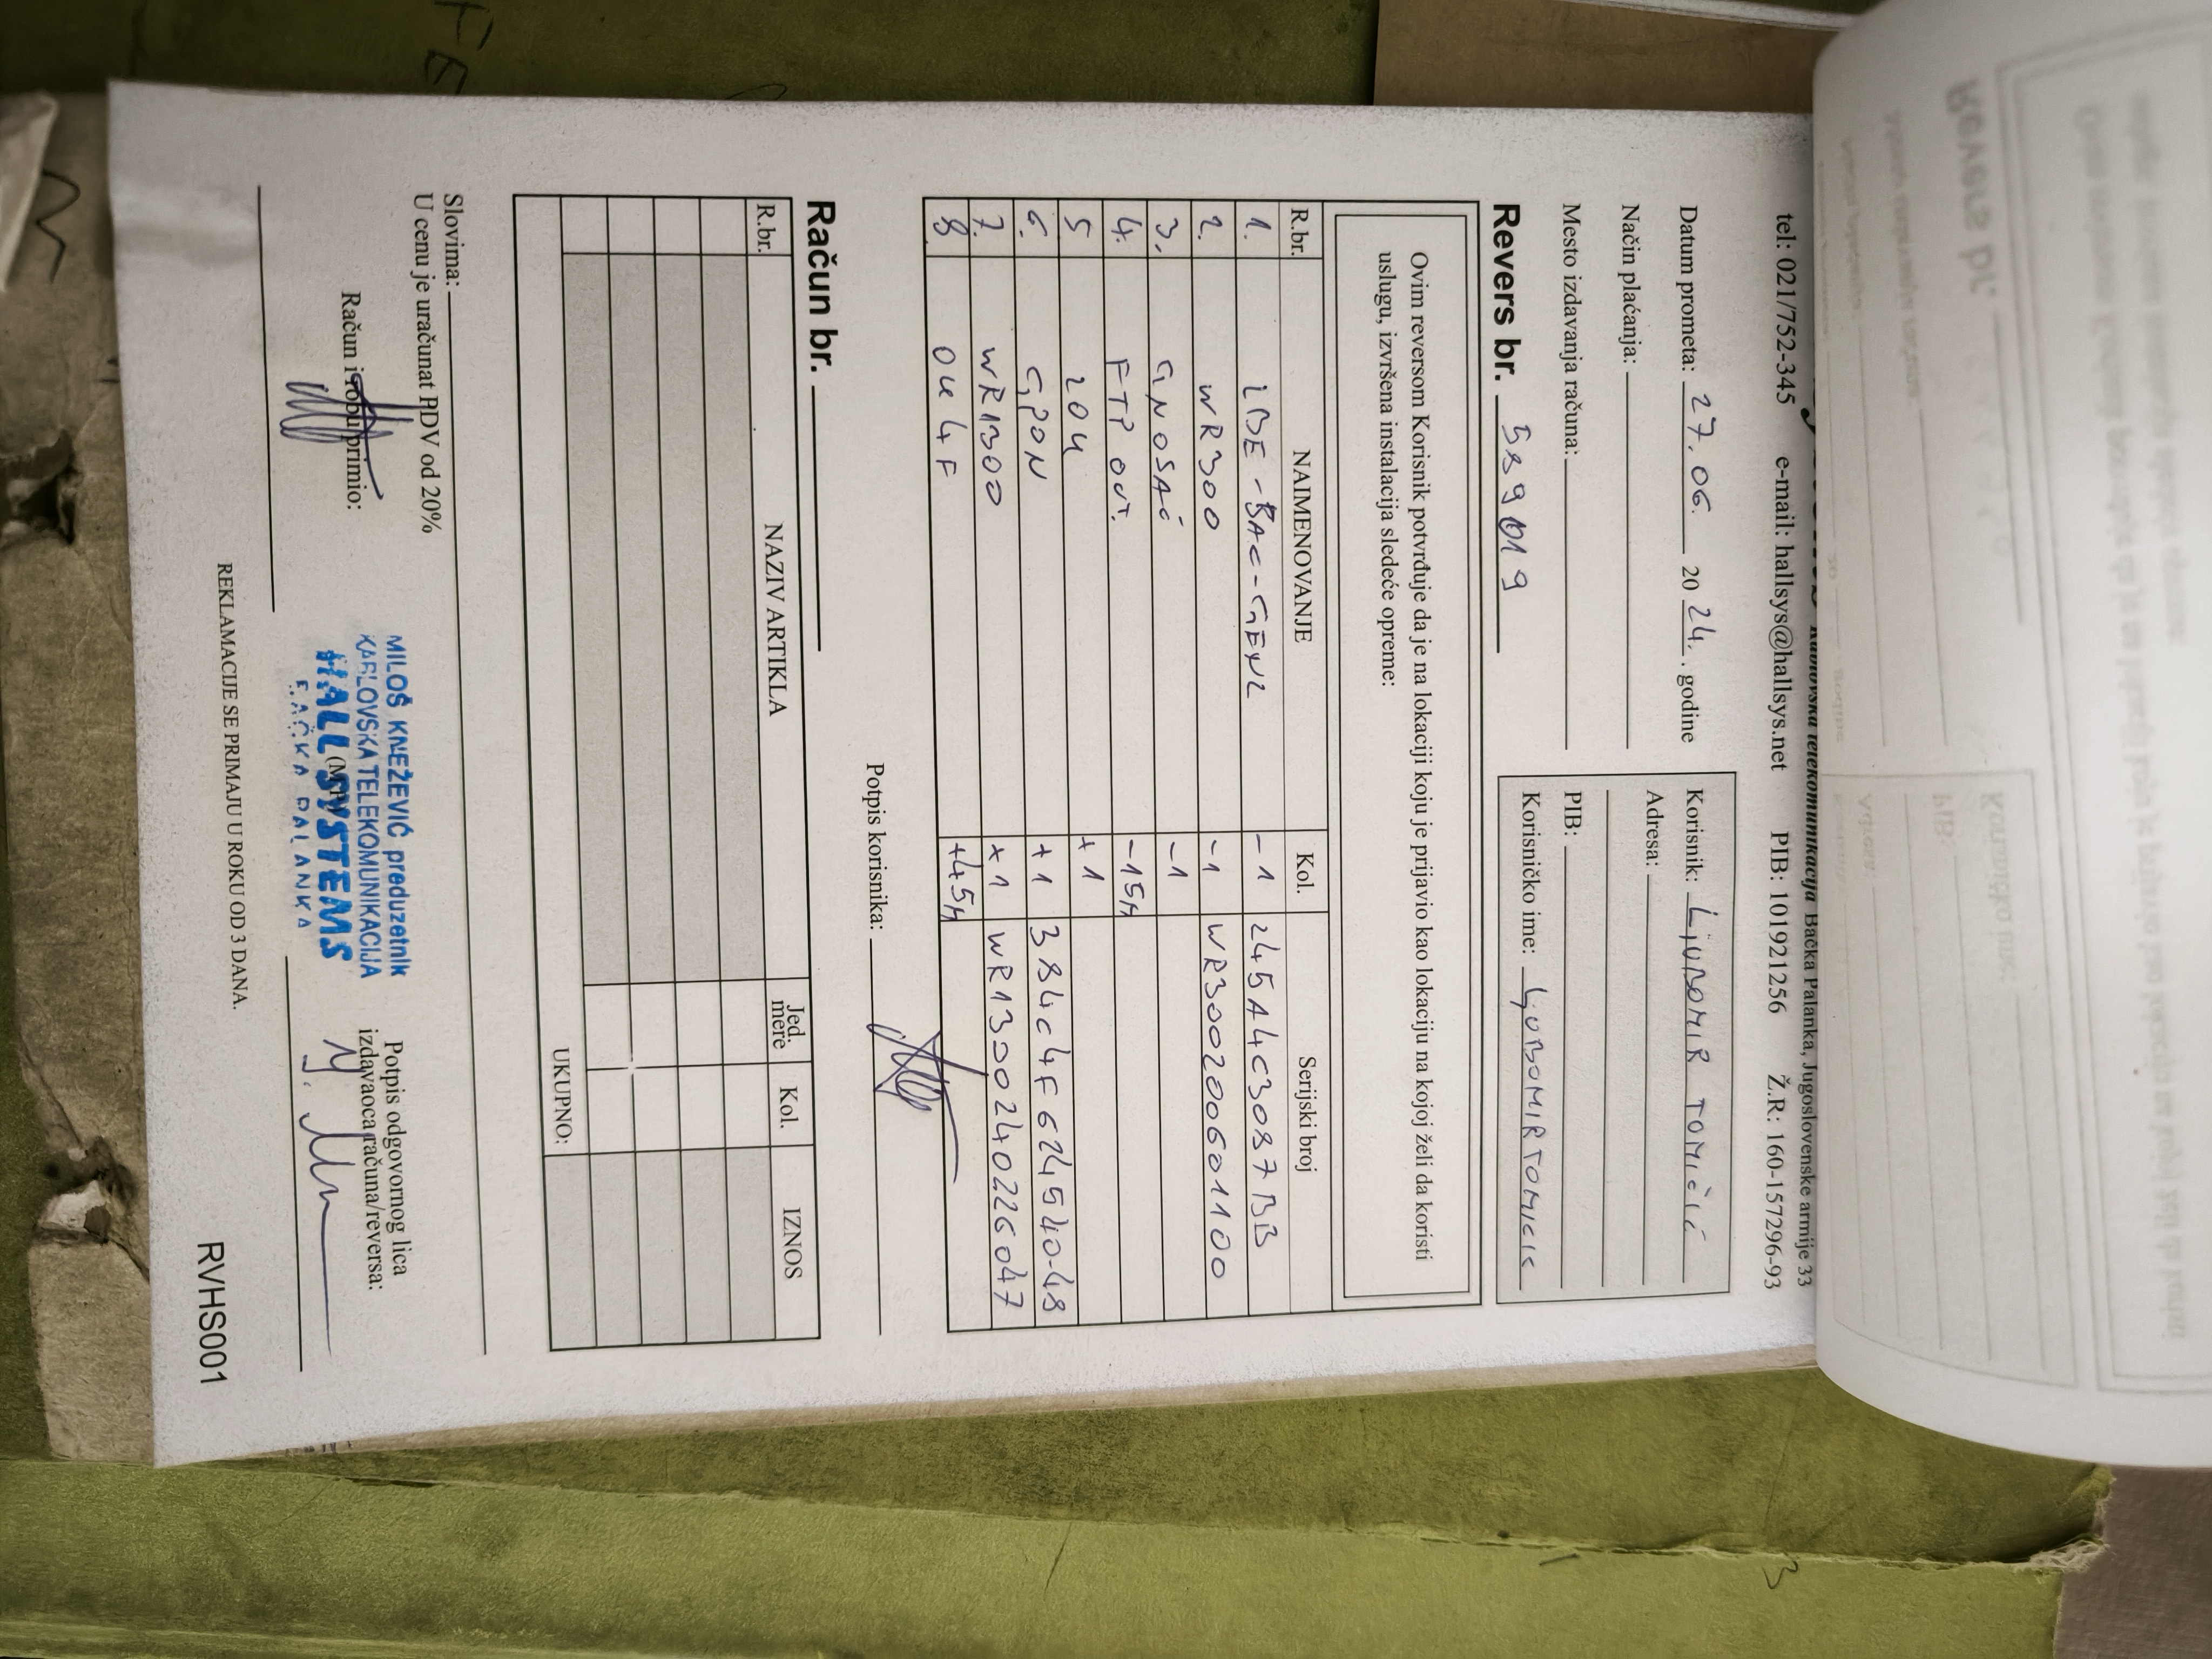 Kablovska telekomunikacija Bačka Palanka, Jugoslovenske armije 33
tel: 021/752-345 e-mail: hallsys@hallsys.net PIB: 101921256 Ž.R: 160-157296-93
Datum prometa: 27.06. 20 24. . godine
Način plaćanja:
Mesto izdavanja računa:
Korisnik: LJUBOMIR TOMIČIĆ
Adresa:
PIB:
Korisničko ime: LJUBOMIRTOMICIC
Revers br. 589019
Ovim reversom Korisnik potvrđuje da je na lokaciji koju je prijavio kao lokaciju na kojoj želi da koristi
uslugu, izvršena instalacija sledeće opreme:
R.br. NAIMENOVANJE Kol. Serijski broj
1. LBE-5AC-GEN2 -1 245A4C3087BB
2. WR300 -1 WR300200601100
3. GNOSAČ -1
4. FTP OUT. -15M
5 ZOU +1
6. GPON +1 384C4F62454048
7. WR1300 +1 WR1300240226047
8. OU 4F +45M
Potpis korisnika:
Račun br.
R.br. NAZIV ARTIKLA Jed. mere Kol. IZNOS
UKUPNO:
Slovima:
U cenu je uračunat PDV od 20%
Račun i robu primio:
MILOŠ KNEŽEVIĆ preduzetnik
KABLOVSKA TELEKOMUNIKACIJA
HALL SYSTEMS
BAČKA PALANKA
(M.P.)
Potpis odgovornog lica
izdavaoca računa/reversa:
REKLAMACIJE SE PRIMAJU U ROKU OD 3 DANA.
RVHS001